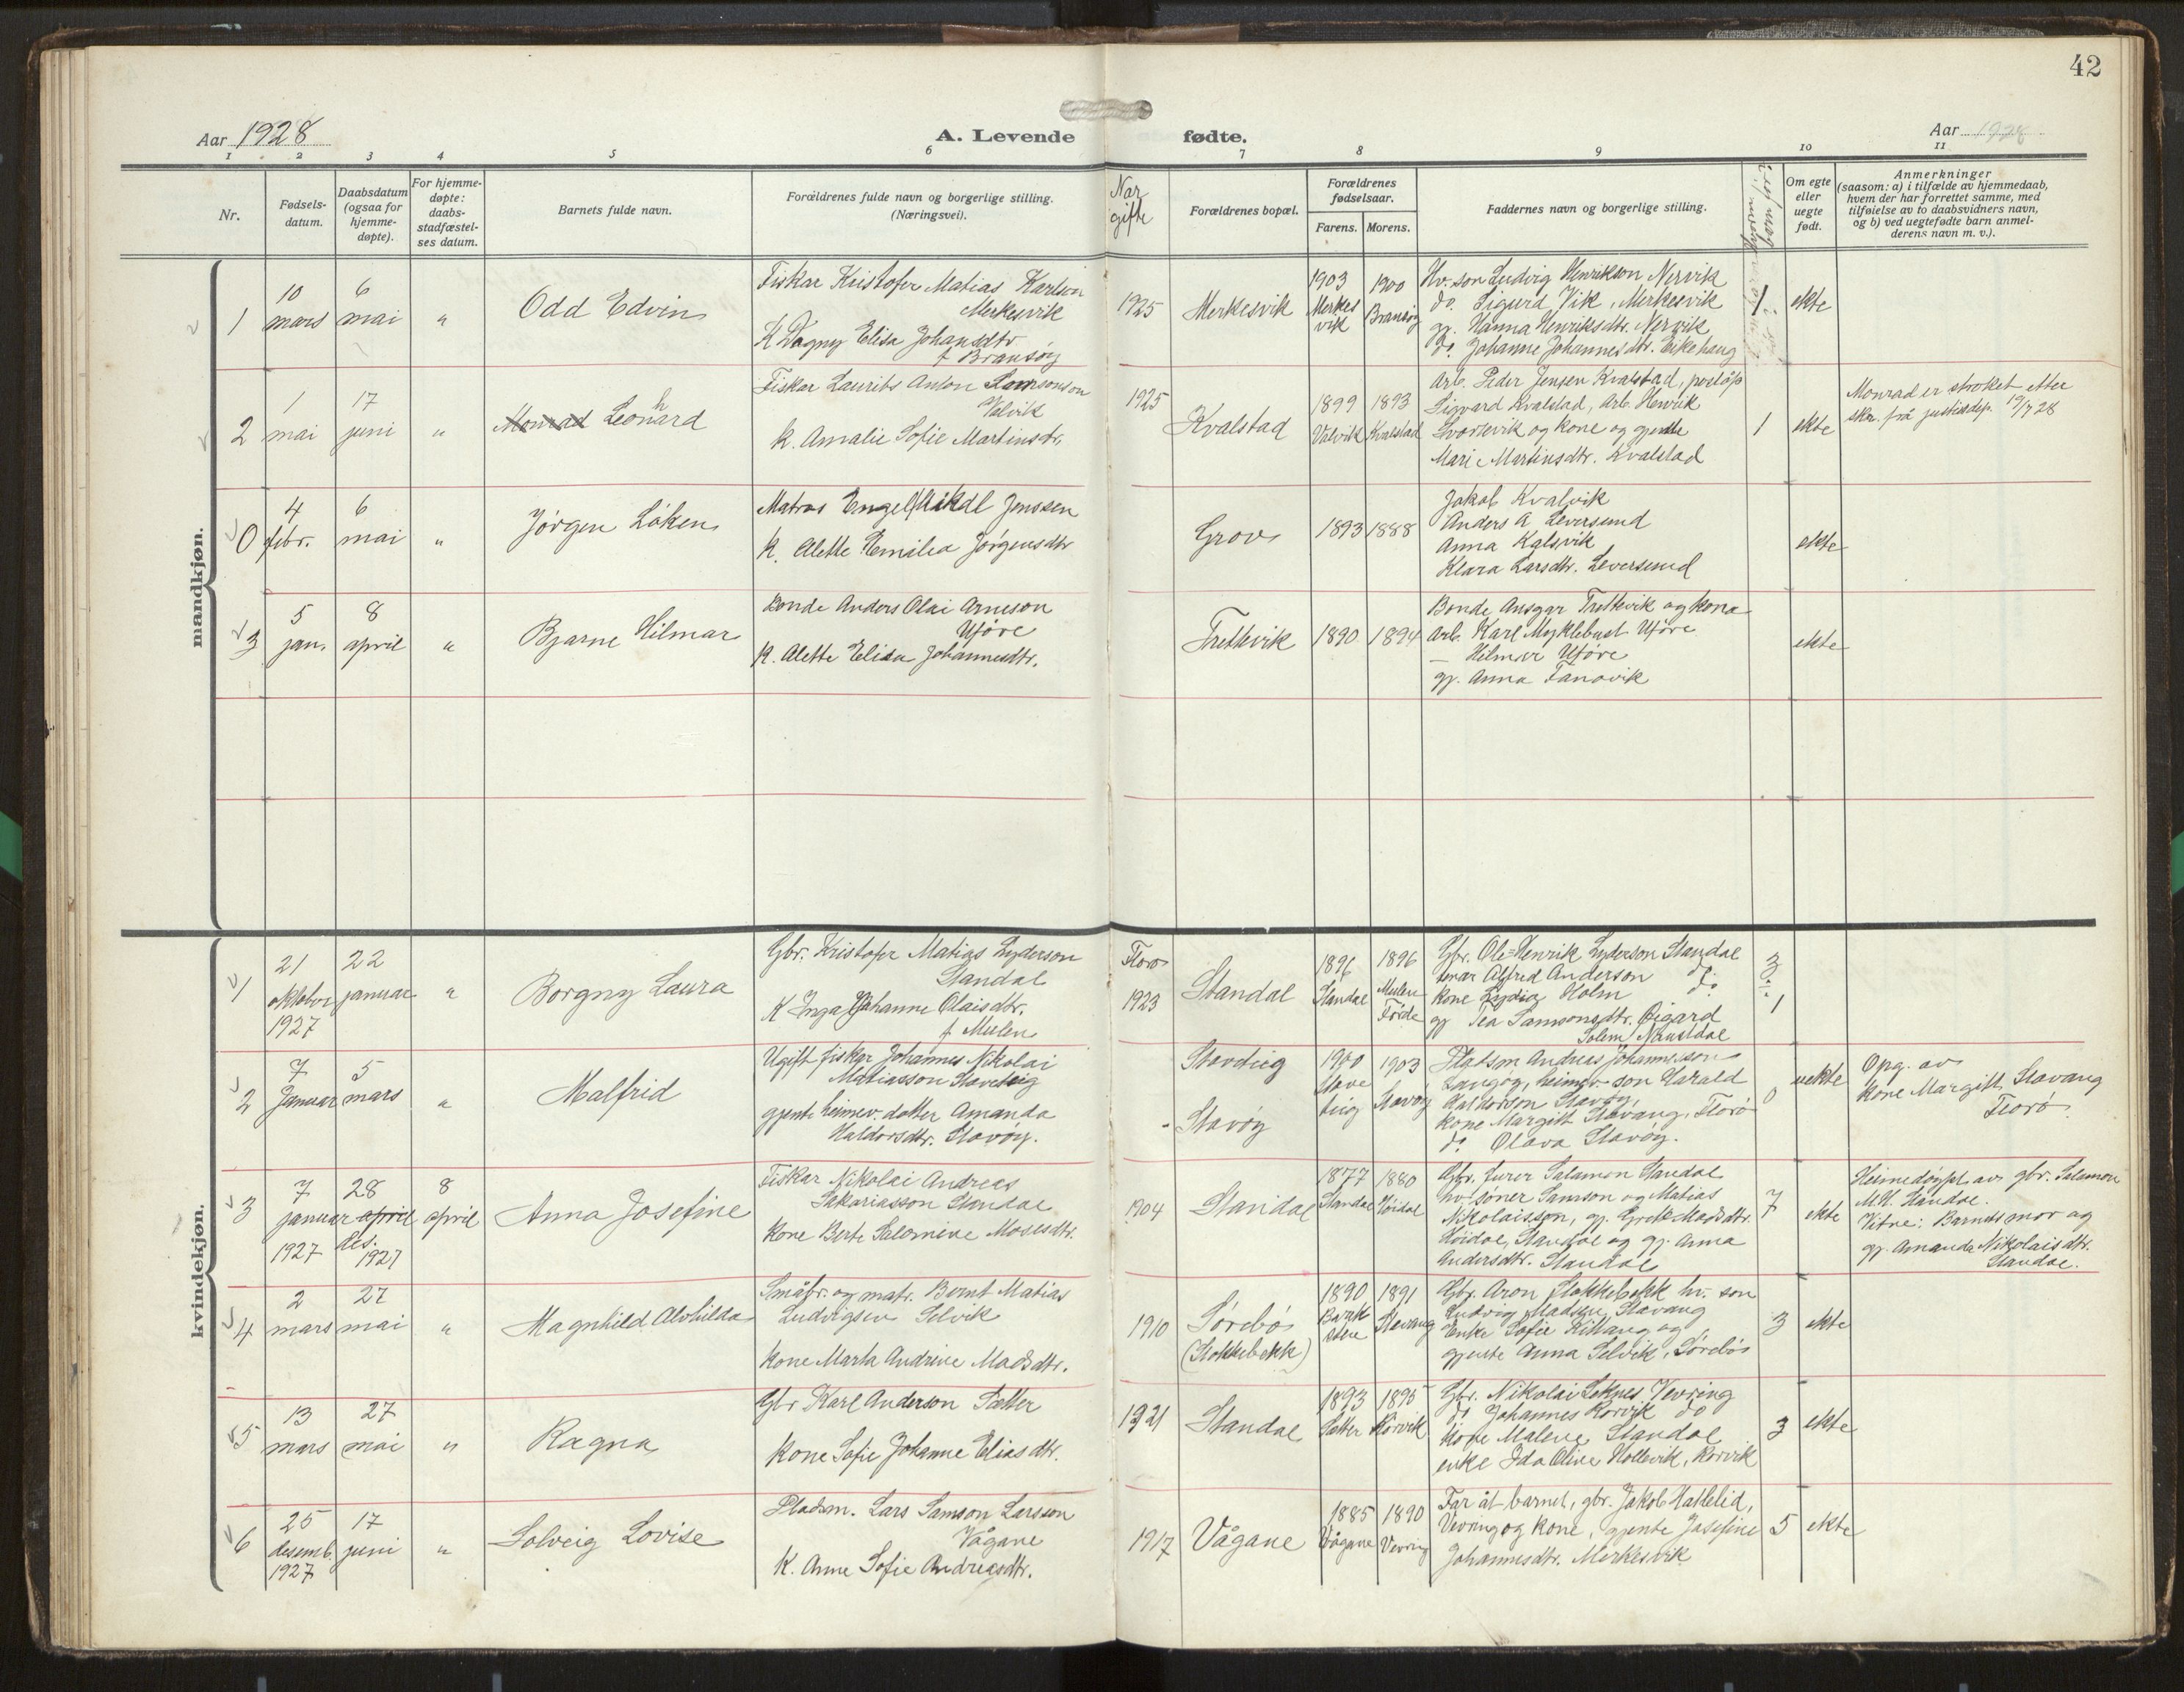 42
Aar 1928
A. Levende fødte.
Aar 1928
1 2 3 4 5 6 7 8 9 10 11
Nr.
Fødsels-
datum.
Daabsdatum
(ogsaa for
hjemme-
døpte).
For hjemme-
døpte:
daabs-
stadfæstel-
ses datum.
Barnets fulde navn.
Forældrenes fulde navn og borgerlige stilling.
(Næringsvei).
Nar
gifte
Forældrenes bopæl.
Forældrenes
fødselsaar.
Farens. Morens.
Faddernes navn og borgerlige stilling.
Om egte
eller
uegte
født.
Anmerkninger
(saasom: a) i tilfælde av hjemmedaab,
hvem der har forrettet samme, med
tilføielse av to daabsvidners navn,
og b) ved uegtefødte barn anmel-
derens navn m. v.).
mandkjøn.
1
10
mars
6
mai
"
Odd Edvin
Fiskar Kristofer Matias Karlson
Merkesvik
K Dagny Elisa Johansdtr
f Bransøy
1925
Merkesvik
1903
Merkes
vik
1900
Bransøy
Hv. son Ludvig Henrikson Nervik
do. Sigurd Vik, Merkesvik
gj. Hanna Henriksdtr. Nervik
do. Johanne Johannesdtr. Eikehaug
1
ekte
2
1
mai
17
juni
"
Monrad Leonhard
Fiskar Laurits Anton Samsonson
Valvik
K. Amalie Sofie Martinsdtr.
1925
Kvalstad
1899
Valvik
1893
Kvalstad
Arb. Peder Jensen Kvalstad, postöp
Sigvard Kvalstad, Arb. Henrik
Svortevik og kone og gjente
Marie Martinsdtr. Kvalstad
1
ekte
Monrad er stroket etter
skr. frå justisdep. 19/7 28
0
4
febr.
6
mai
"
Jørgen Løken
Matros Engel Mikal Jenssen
K. Alette Emilea Jørgensdtr
Grov
1893
1888
Jakob Kvalvik
Anders A Leversund
Anna Kalsvik
Klara Larsdtr. Leversund
ekte
3
5
jan.
8
april
"
Bjarne Hilmar
Bonde Anders Olai Arneson
Uføre
K. Alette Elida Johannesdtr.
Trettevik
1890
1894
Bonde Ansgar Trettevik og kona
Arb. Karl Myklebust Uføre
— Hilmar Uføre
gj. Anna Fanavik
ekte
kvindekjøn.
1
21
oktober
1927
22
januar
"
Borgny Laura
Gbr. Kristofer Matias Lyderson
Standal
K Inga Johanne Olaisdtr.
f. Mulen
Florø
1923
Standal
1896
Standal
1896
Mulen
Førde
Gbr. Ole-Henrik Lyderson Standal
Alfred Anderson do
kone Lydia Holm do
gj Tea Samsonsdtr. Øigard
Solem Naustdal
3
1
2
7
Januar
5
mars
"
Malfrid
Ugift fiskar Johannes Nikolai
Matiasson Staveteig
gjente heimev. dotter Amanda
Haldorsdtr. Stavøy.
Stavøy
1900
Stave
teig
1903
Stavøy
Pladson Andreas Johannesson
Langøy, heimev-son Harald
Haldorson Stavøy,
kone Margitt Stavang, Florø
do Olava Stavøy.
0
uekte
Opg. av
kone Margitt Stavang
Florø.
3
7
januar
1927
28
april
des.
1927
8
april
Anna Josefine
Fiskar Nikolai Andreas
Sakariasson Standal
kone Berte Salomine Mosesdtr.
1904
Standal
1877
Standal
1880
Høidal
Gbr. Furer Salamon Standal
hv-søner Samson og Matias
Nikolaisson, gj. Grete Madsdtr.
Høidal, Standal og gj. Anna
Andersdtr. Standal
7
ekte
Heimedøypt av. gbr. Salamon
M.N. Standal.
Vitne: Barnds mor og
gj. Amanda Nikolaisdtr.
Standal.
4
2
mars
27
mai
"
Magnhild Alvhilda
Småbr. og matr. Bernt Matias
Ludvigsen Selvik
kone Marta Andrine Madsdtr.
1910
Sørebø
(Stokkebekk)
1890
1891
Stavang
Gbr. Aron Stokkebekk hv. son
Ludvig Madsen, Stavang
Enke Sofie Kittang og
gjente Anna Selvik, Sørebø
3
ekte
5
13
mars
27
mai
"
Ragna
Gbr Karl Anderson Sætter
kone Sofie Johanne Eliasdtr.
1921
Standal
1893
Sætter
1895
Rørvik
Gbr. Nikolai Leknes, Vevring
do Johannes Rørvik do
kone Malene Standal
enke Ida Oline Hellevik, Rørvik
3
ekte
6
25
desemb.
1927
17
juni
"
Solveig Lovise
Pladsm. Lars Samson Larsson
Vågane
K. Anne Sofie Andreasdtr.
1917
Vågane
1885
Vågane
1890
Vevring
Far åt barnet, gbr. Jakob Hatlelid,
Vevring og kone, gjente Josefine
Johannesdtr. Merkesvik
5
ekte